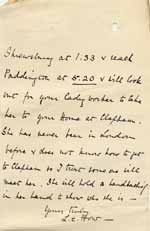 Shrewsbury at 1.33 & reach
Paddington at 5.20 & will look
out for your Lady worker to take
her to your Home at Clapham.
She has never been in London
before & does not know how to get
to Clapham so I trust some one will
meet her. She will hold a handkerchief
in her hand to show who she is —
Yours truly